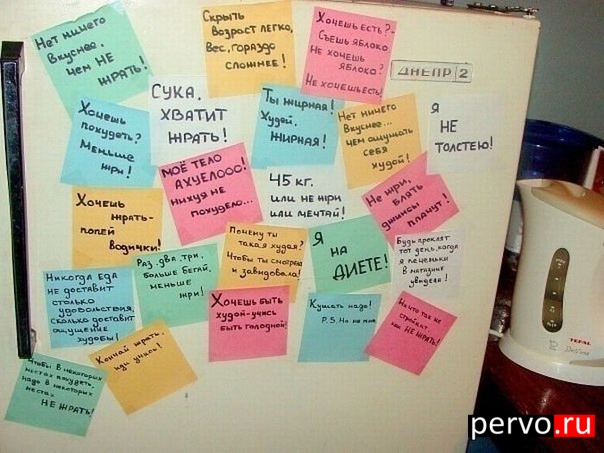 Нет ничего
вкуснее,
чем НЕ
ЖРАТЬ!
Скрыть
возраст легко,
вес, гораздо
сложнее!
Хочешь есть?-
Съешь яблоко.
Не хочешь
яблоко?
Не хочешь есть!
ДНЕПР 2
СУКА,
ХВАТИТ
ЖРАТЬ!
Ты жирная!
Худей,
ЖИРНАЯ!
Нет ничего
вкуснее...
чем ощущать
себя
худой!
Я
НЕ
ТОЛСТЕЮ!
Хочешь
похудеть?
Меньше
жри!
МОЁ ТЕЛО
АХУЕЛООО!
НИХУЯ НЕ
ПОХУДЕЛО...
45 КГ.
ИЛИ НЕ ЖРИ
ИЛИ МЕЧТАЙ!
Не жри,
БЛЯТЬ
джинсы
плачут!
Хочешь
жрать-
попей
водички!
Раз, два, три,
больше бегай,
меньше
жри!
Почему ты
такая худая?
Чтобы ты смотрела
и завидовала!
Я
НА
ДИЕТЕ!
Будь проклят
тот день, когда
я печеньки
в магазине
увидела!
Никогда еда
не доставит
столько
удовольствия,
сколько доставит
ощущение
худобы!
Хочешь быть
худой-учись
быть голодной!
Кушать надо!
P.S. Но не мне.
Ничто так не
стройнит,
как НЕ ЖРАТЬ!
Чтобы в некоторых
местах похудеть,
надо в некоторых
местах
НЕ ЖРАТЬ!
Кончай жрать,
иди учись!
TEFAL
pervo.ru